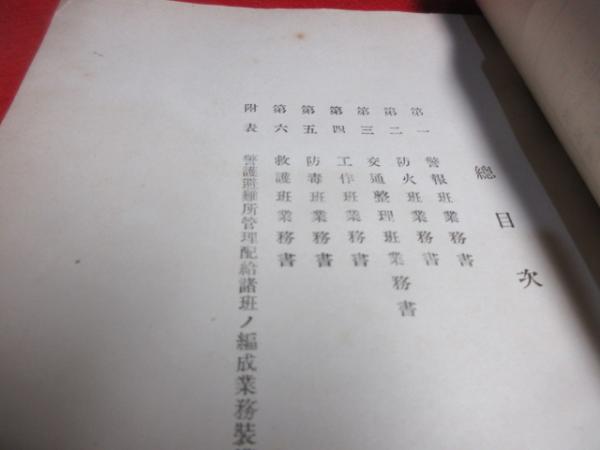 總目次
第一 警報班業務書
第二 防火班業務書
第三 交通整理班業務書
第四 工作班業務書
第五 防毒班業務書
第六 救護班業務書
附表 警護避難所管理配給諸班ノ編成業務裝